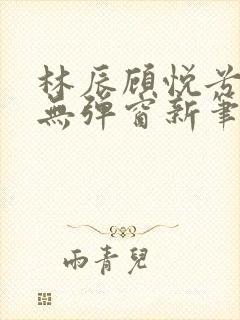 林辰顾悦兮
無彈窗新筆
雨青兒